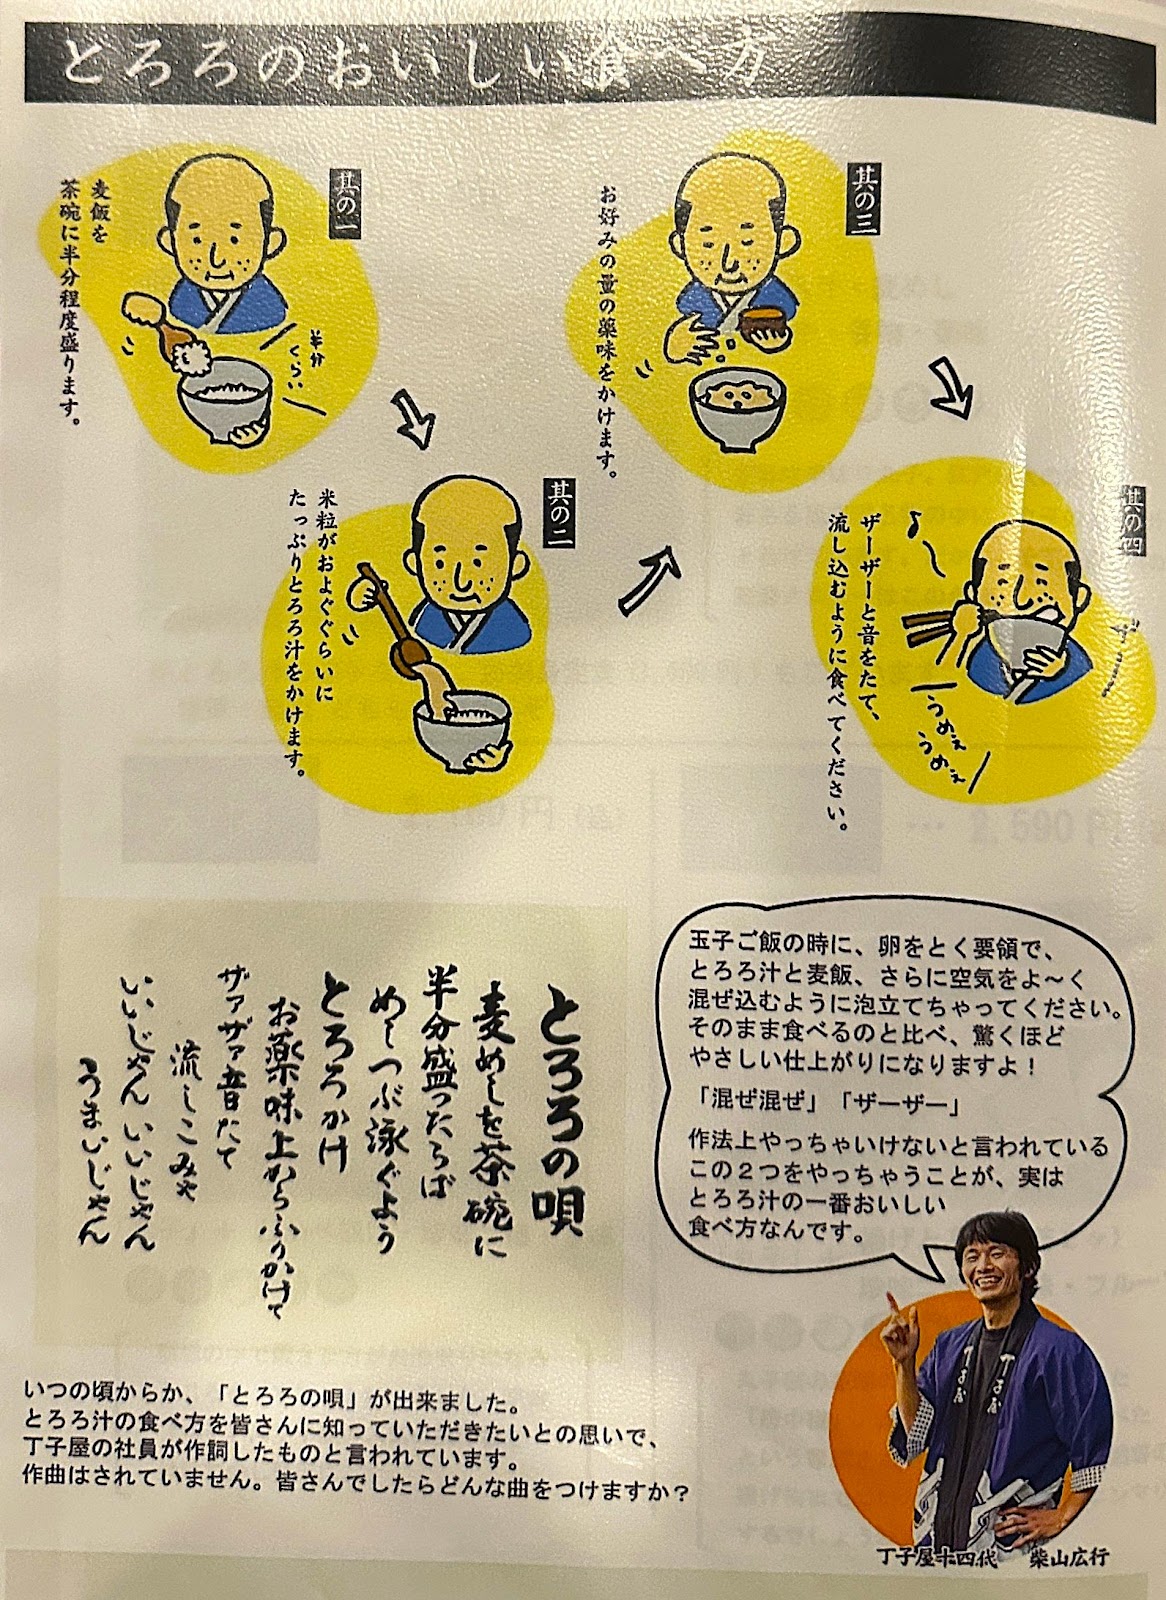 とろろのおいしい食べ方
其の一
麦飯を
茶碗に半分程度盛ります。
半分
くらい
其の二
米粒がおよぐぐらいに
たっぷりとろろ汁をかけます。
其の三
お好みの量の薬味をかけます。
其の四
ザーザーと音をたて、
流し込むように食べてください。
うめぇ
うめぇ
とろろの唄
麦めしを茶碗に
半分盛ったらば
めしつぶ泳ぐよう
とろろかけ
お薬味上からふりかけて
ザァザァ音たて
流しこみゃ
いいじゃん いいじゃん
うまいじゃん
玉子ご飯の時に、卵をとく要領で、
とろろ汁と麦飯、さらに空気をよ～く
混ぜ込むように泡立てちゃってください。
そのまま食べるのと比べ、驚くほど
やさしい仕上がりになりますよ！
「混ぜ混ぜ」「ザーザー」
作法上やっちゃいけないと言われている
この２つをやっちゃうことが、実は
とろろ汁の一番おいしい
食べ方なんです。
丁子屋
丁子屋十四代 柴山広行
いつの頃からか、「とろろの唄」が出来ました。
とろろ汁の食べ方を皆さんに知っていただきたいとの思いで、
丁子屋の社員が作詞したものと言われています。
作曲はされていません。皆さんでしたらどんな曲をつけますか？